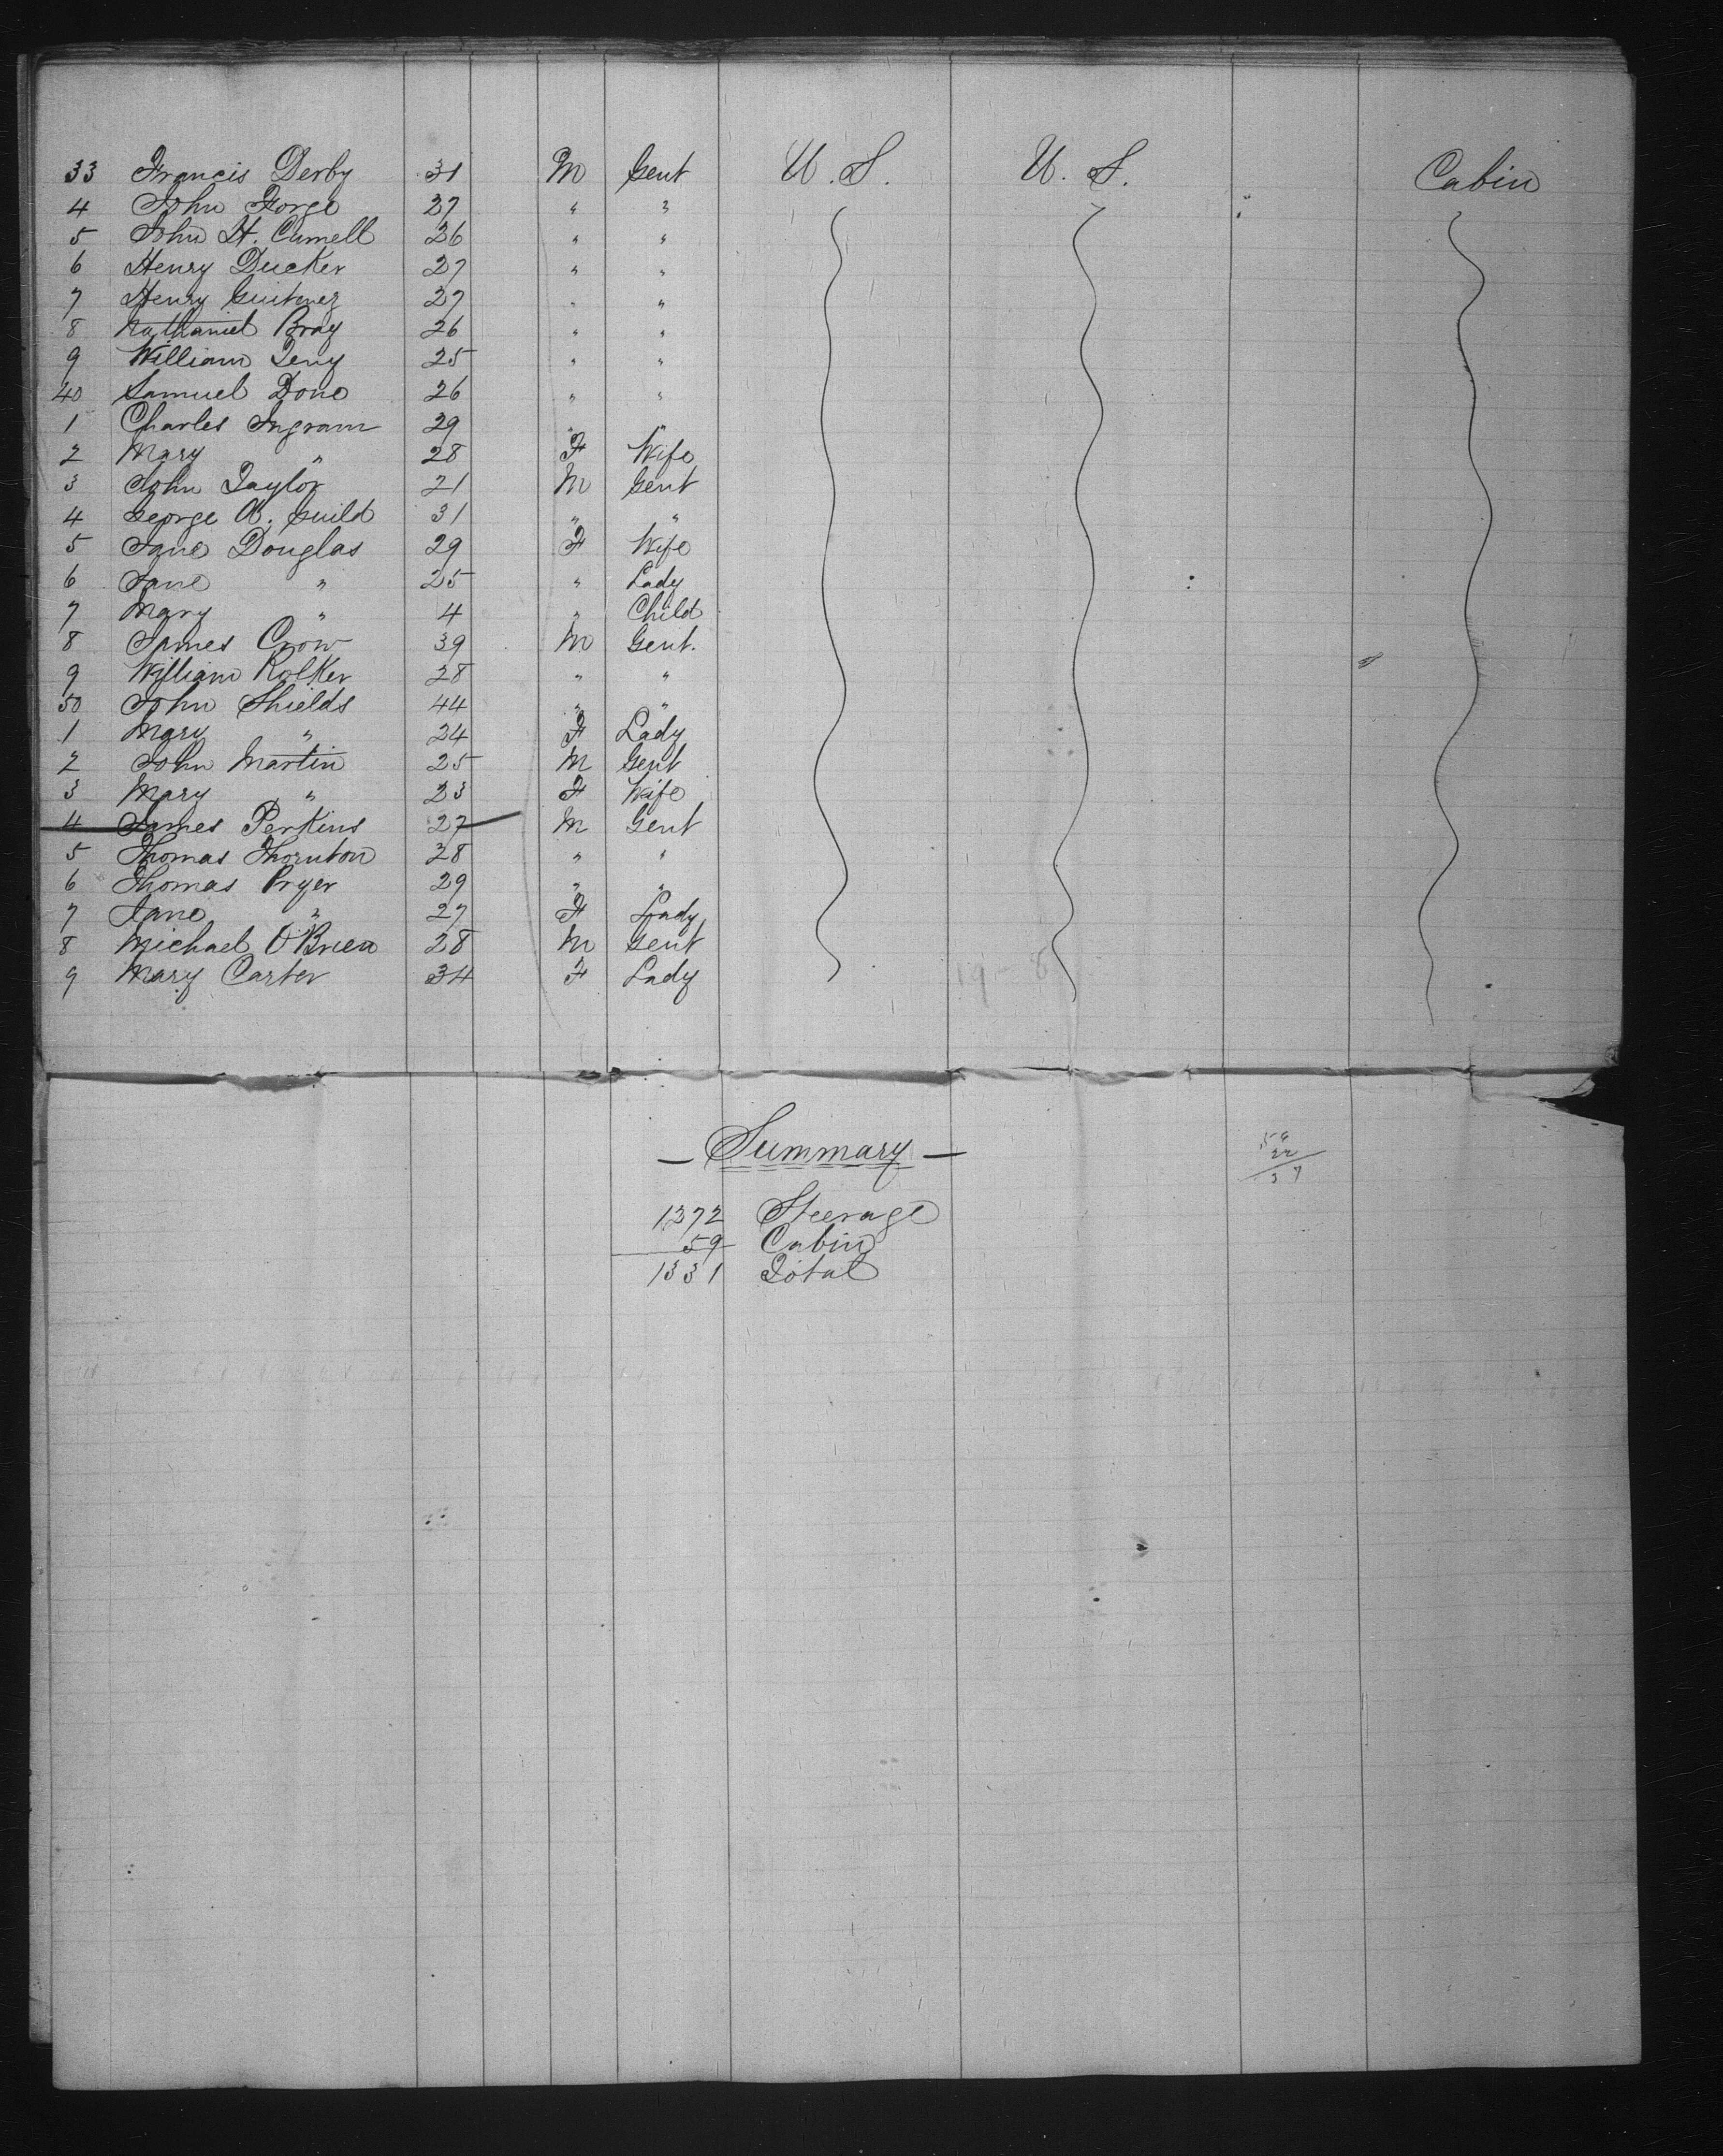 33 Francis Derby 31 M Gent U. S. U. S. Cabin
4 John Forge 27 " "
5 John H. Camell 26 " "
6 Henry Ducker 27 " "
7 Henry 27 " "
8 Nathaniel Bray 26 " "
9 William 25 " "
40 Samuel Done 26 " "
1 Charles Ingram 29 " "
2 Mary " 28 F Wife
3 John Taylor 21 M Gent
4 George A. Guild 31 " "
5 Jane Douglas 29 F Wife
6 Jane " 25 " Lady
7 Mary " 4 " Child
8 James Crow 39 M Gent.
9 William Rolker 28 " "
50 John Shields 44 " "
1 Mary " 24 F Lady
2 John Martin 25 M Gent
3 Mary " 23 F Wife
4 James Perkins 27 M Gent
5 Thomas Thornton 28 " "
6 Thomas Pryer 29 " "
7 Jane " 27 F Lady
8 Michael O'Brien 28 M Gent
9 Mary Carter 34 F Lady
19 - 8
— Summary —
59
22
37
1272 Steerage
59 Cabin
1331 Total